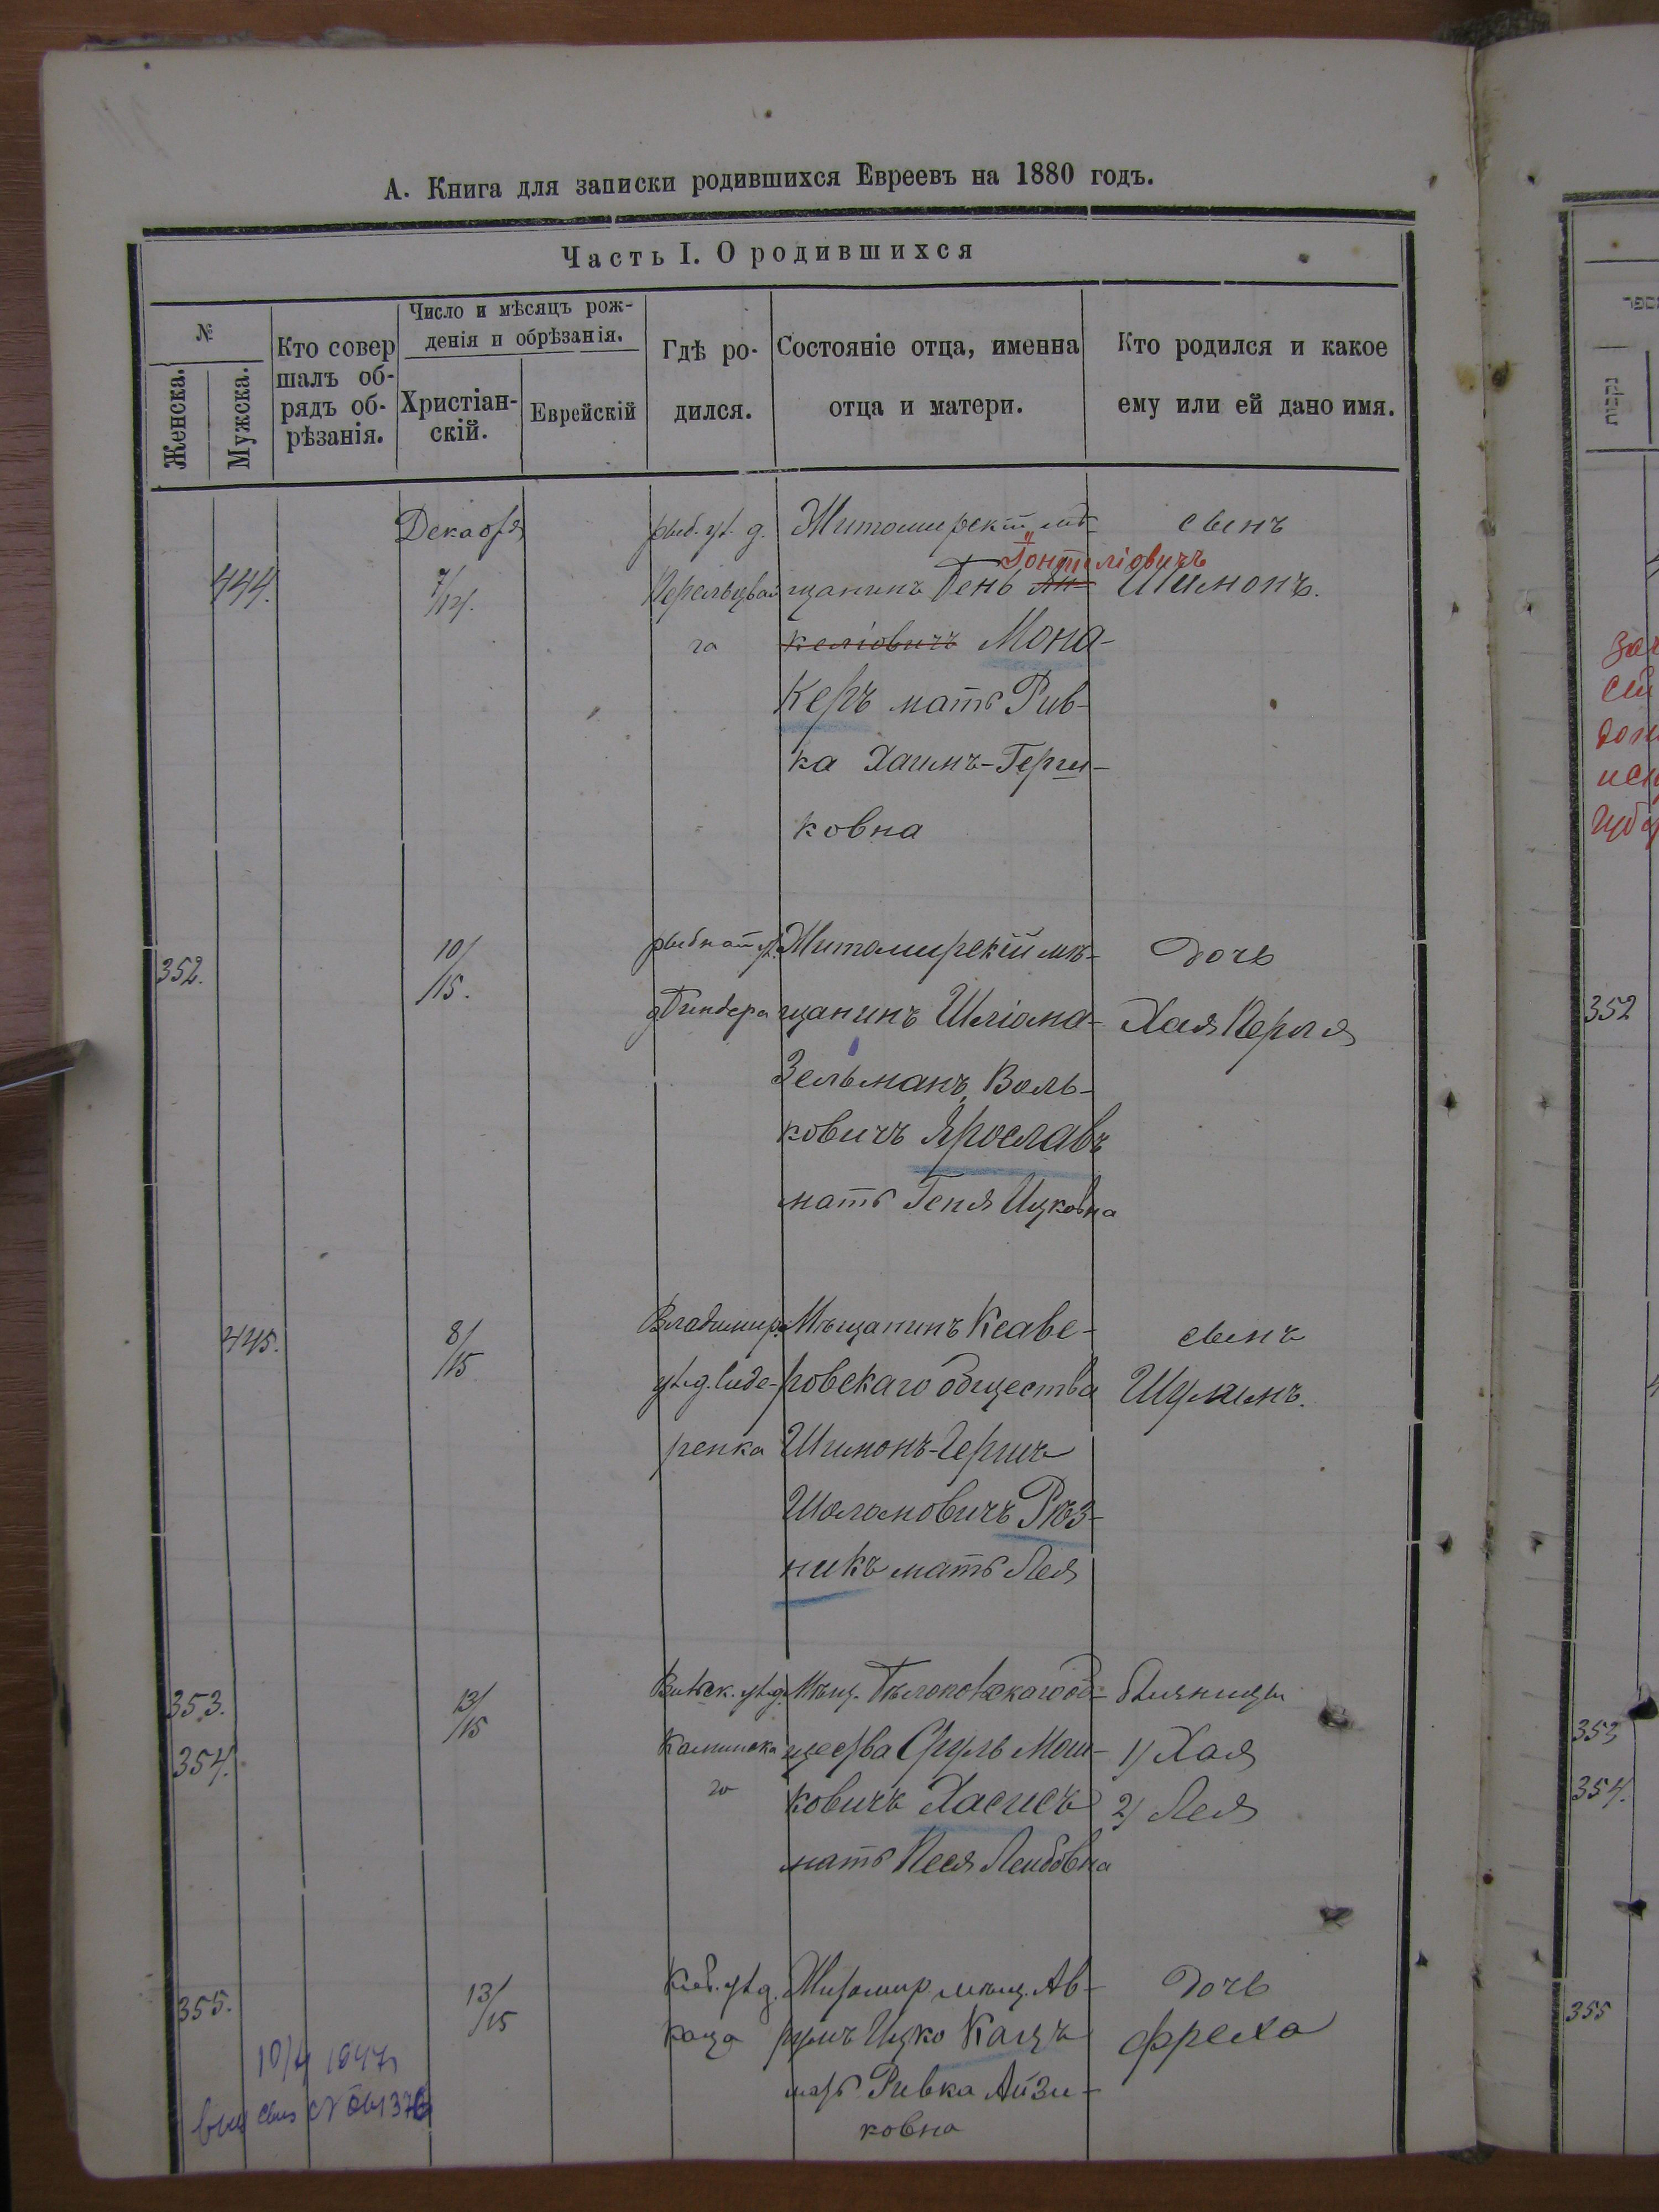 А. Книга для записки родившихся Евреевъ на 1880 годъ.
Часть I. О родившихся
№
Женска.
Мужска.
Кто совер
шалъ об-
рядъ об-
рѣзанія.
Число и мѣсяцъ рож-
денія и обрѣзанія.
Христіан-
скій.
Еврейскій
Гдѣ ро-
дился.
Состояніе отца, именна
отца и матери.
Кто родился и какое
ему или ей дано имя.
444.
Декабря
7/14.
рыб. ул. д.
Перельцвай
га
Житомирскій мѣ-
щанинъ Бень Ян-
Іонтеліовичъ
келіовичъ Мона-
керъ мать Рив-
ка Хаимъ-Герш-
ковна
сынъ
Шимонъ.
352.
10/15.
рыбная ул.
д Биндера
Житомирскій мѣ-
щанинъ Шліома-
Зельманъ Воль-
ковичъ Ярославъ
мать Геня Ицковна
дочь
Хая Перля
445.
8/15
Владимир.
ул. д. Сиде-
ренка
Мѣщанинъ Ксаве-
ровскаго общества
Шимонъ-Гершъ
Шоломовичъ Рѣз-
никъ мать Лея
сынъ
Шулимъ.
353.
354.
13/15
ул. д.
Каминска
го
Мѣщ. Бѣлопольскаго об-
щества Сруль Мош-
ковичъ Хасисъ
мать Песя Лейбовна
близницы
1) Хая
2) Лея
355.
13/15
Киев. ул. д.
Каца
Житомир. мѣщ. Ав-
румъ Ицко Кацъ
мать Ривка Айзи-
ковна
дочь
Фрейха
10/4 1947
352
353
354.
355